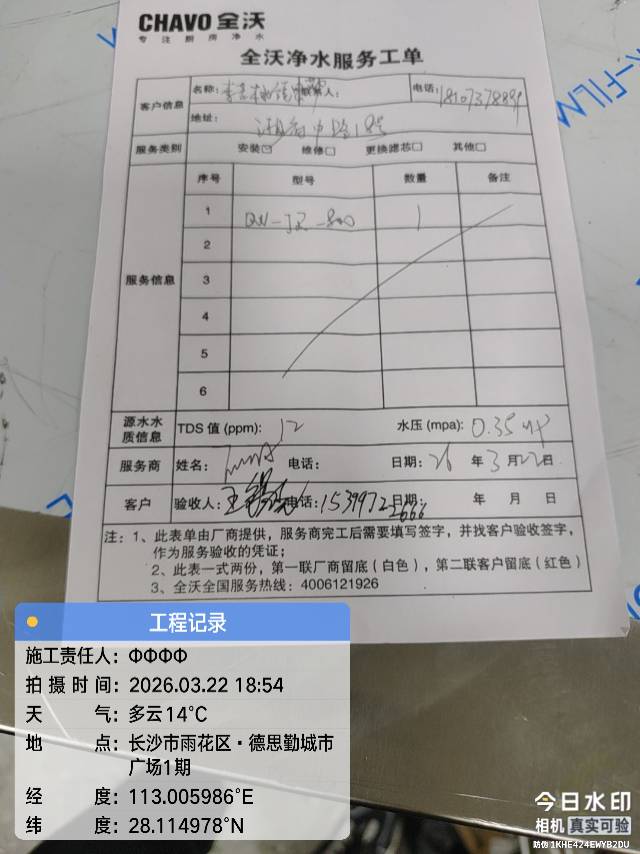 CHAVO 全沃
专 注 厨 房 净 水
全沃净水服务工单
客户信息 名称: 联系人: 电话:
地址:
服务类别 安装☑ 维修□ 更换滤芯□ 其他□
服务信息 序号 型号 数量 备注
1 QW-JZ-800 1
2
3
4
5
6
源水水质信息 TDS 值 (ppm): 12 水压 (mpa): 0.35
服务商 姓名: 电话: 日期: 26 年 3 月 22 日
客户 验收人: 电话: 日期: 年 月 日
注: 1、此表单由厂商提供，服务商完工后需要填写签字，并找客户验收签字，
作为服务验收的凭证；
2、此表一式两份，第一联厂商留底（白色），第二联客户留底（红色）
3、全沃全国服务热线: 4006121926
工程记录
施工责任人: ΦΦΦΦ
拍摄时间: 2026.03.22 18:54
天 气: 多云14°C
地 点: 长沙市雨花区·德思勤城市
广场1期
经 度: 113.005986°E
纬 度: 28.114978°N
今日水印
相机 真实可验
防伪 1KHE424EWYB2DU